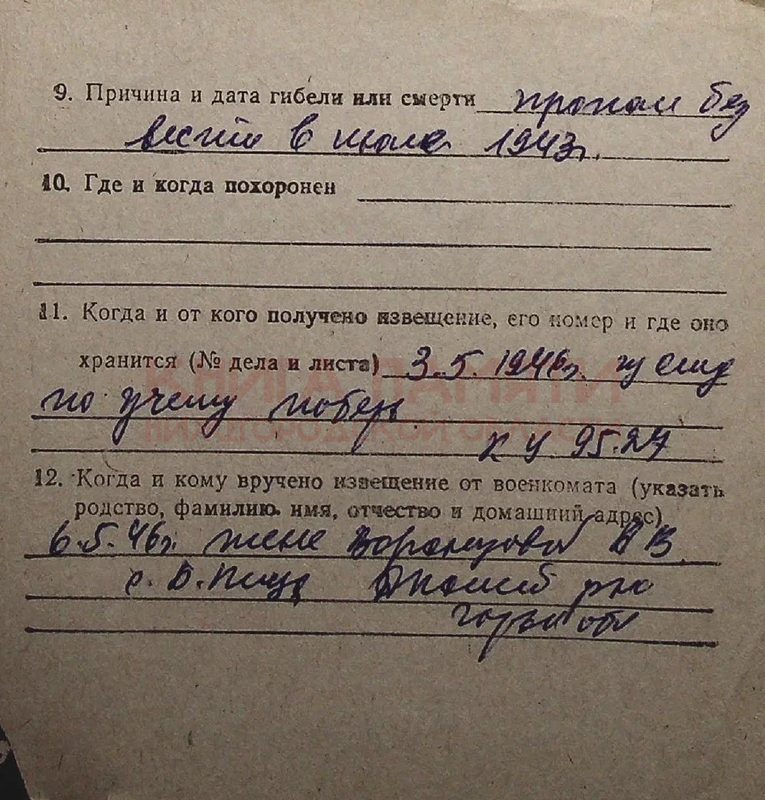 9. Причина и дата гибели или смерти пропал без
вести в июле 1943г.
10. Где и когда похоронен
11. Когда и от кого получено извещение, его номер и где оно
хранится (№ дела и листа) 3.5.1946г.
КНИГА ПАМЯТИ
по учету потерь
НИЖЕГОРОДСКОЙ ОБЛАСТИ
95.27
12. Когда и кому вручено извещение от военкомата (указать
родство, фамилию, имя, отчество и домашний адрес)
6.5.46г. жене Воронцовой
с. Б.